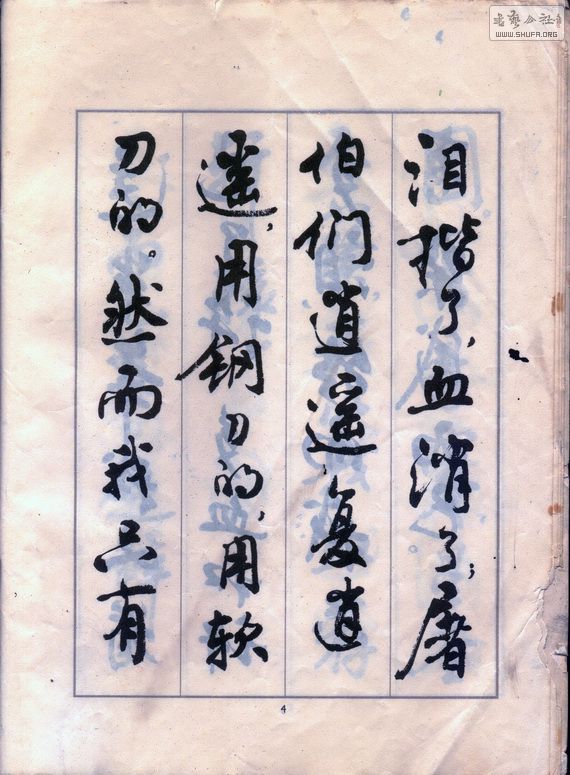 泪揩了，血消了；屠
伯们逍遥复逍
遥，用钢刀的，用软
刀的。然而我只有
4
书艺公社
WWW.SHUFA.ORG